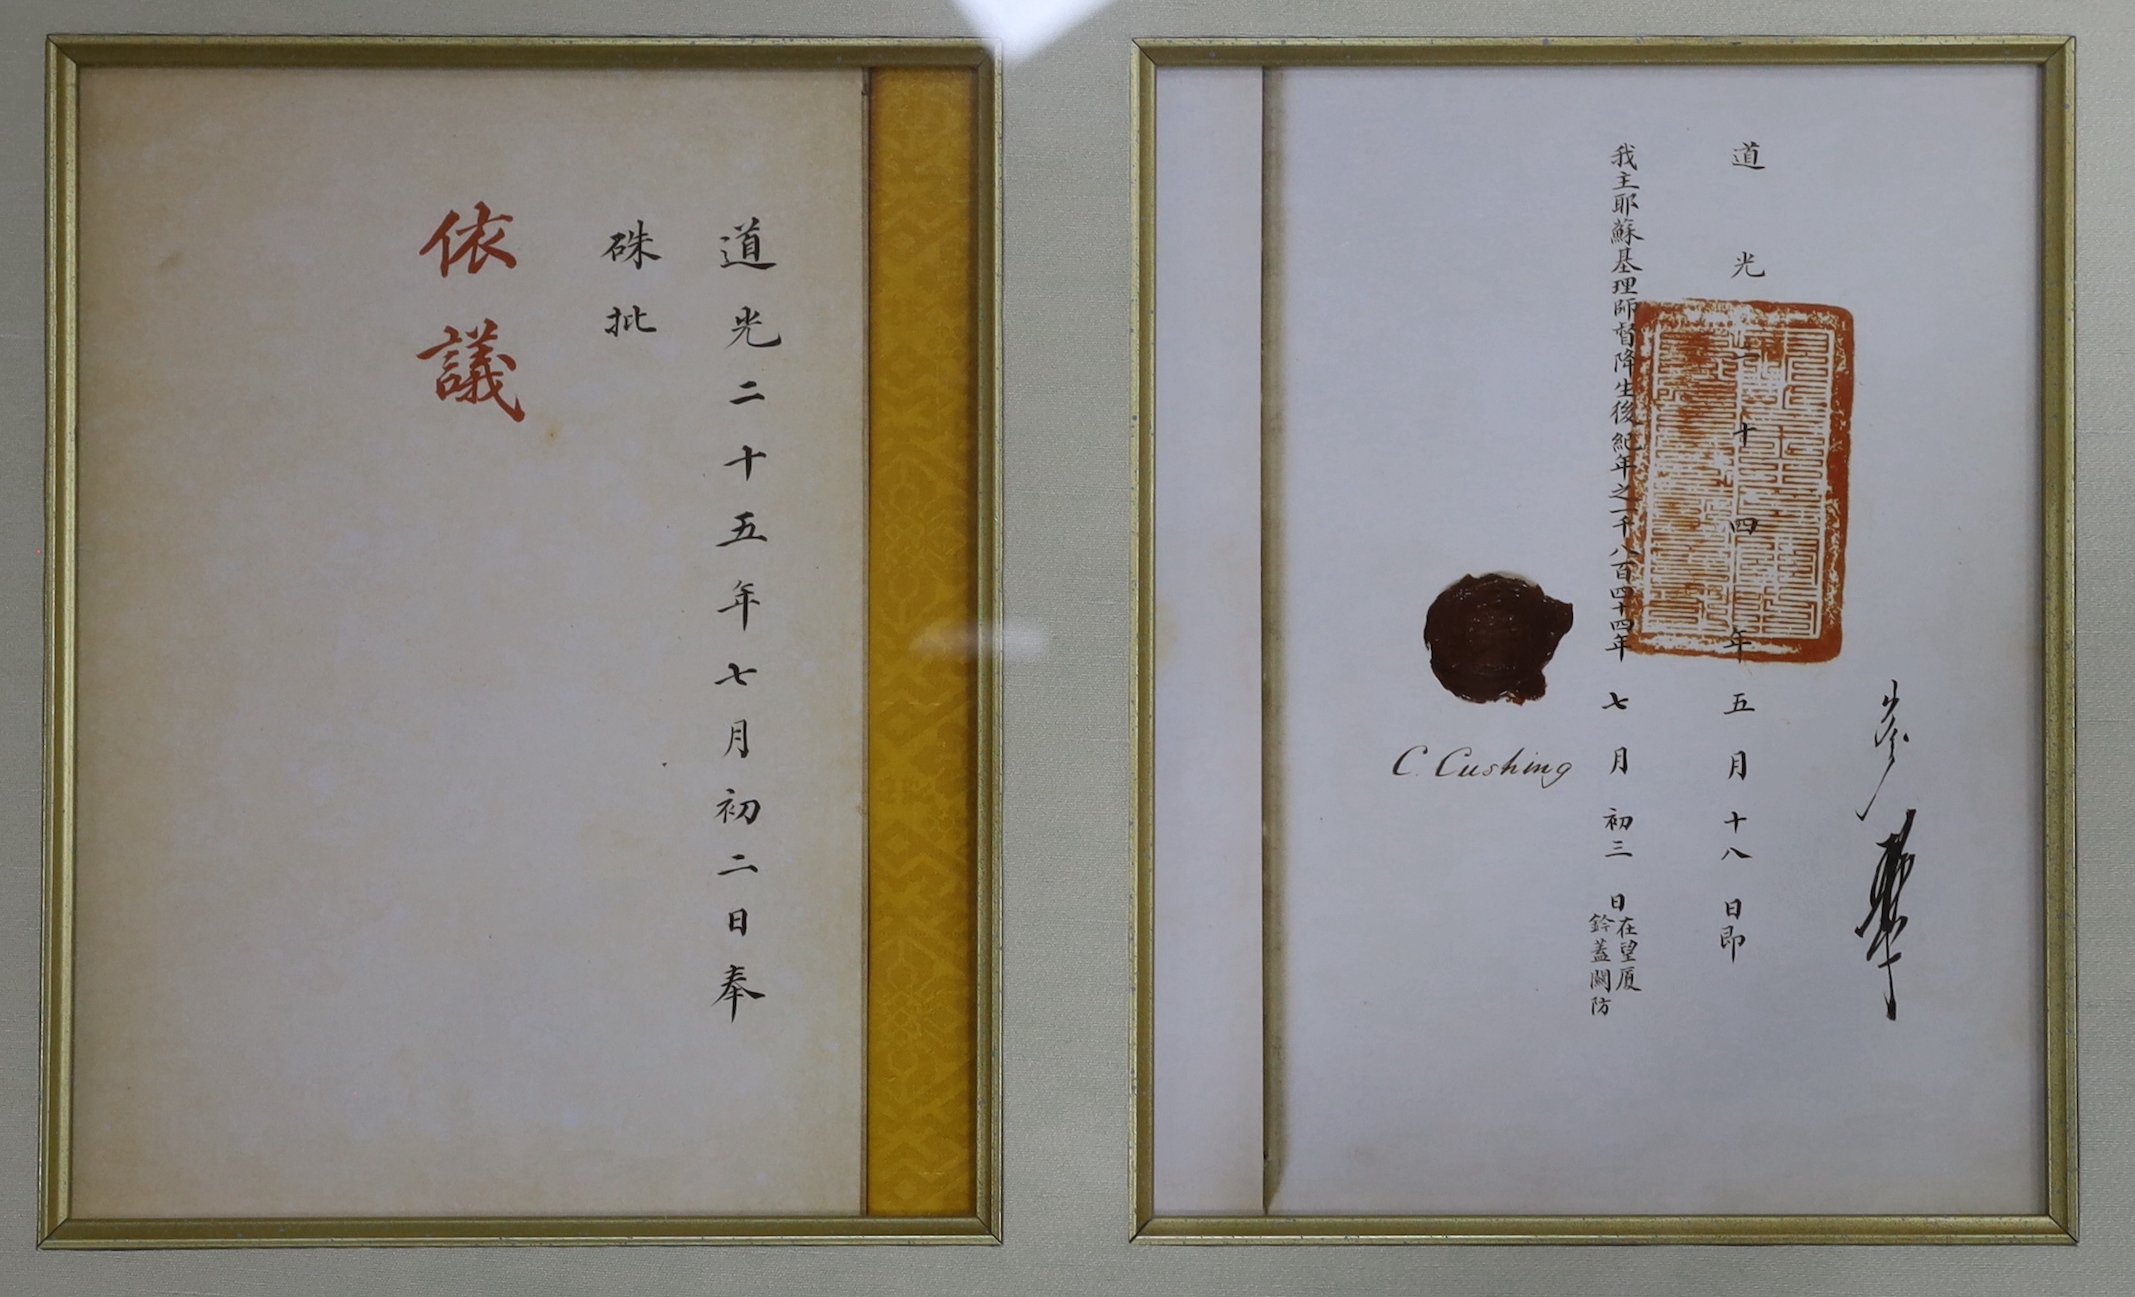 道光二十五年七月初二日奉
硃批
依議
道光二十四年五月十八日即
我主耶蘇基理師督降生後紀年之一千八百四十四年七月初三日在望厦
鈐蓋關防
C. Cushing